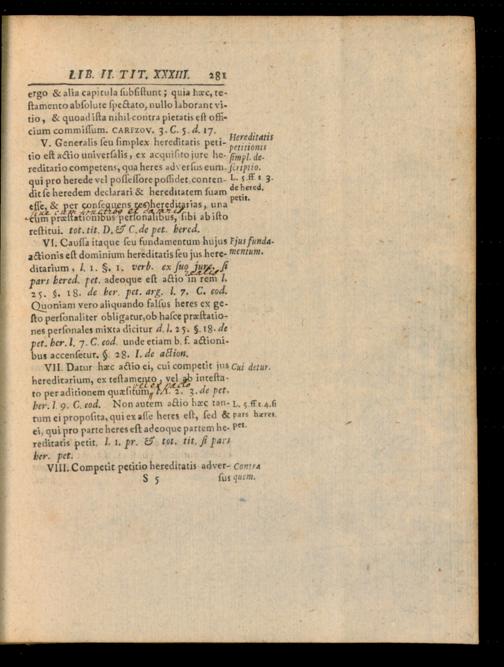 LIB. II. TIT. XXXIII. 281
ergo & alia capitula subsistunt; quia hæc, te-
stamento absolute spectato, nullo laborant vi-
tio, & quoad ista nihil contra pietatis est offi-
cium commissum. CARPZOV. 3. C. 5. d. 17.
V. Generalis seu simplex hereditatis peti-
tio est actio universalis, ex acquisito jure he-
reditario competens, qua heres adversus eum,
qui pro herede vel possessore possidet, conten-
dit se heredem declarari & hereditatem suam
esse, & per consequens res hereditarias, una
sive cum fructibus et damnis
cum præstationibus personalibus, sibi ab isto
restitui. tot. tit. D. & C. de pet. hered.
Hereditatis
petitionis
simpl. de-
scriptio.
L. 5. ff. t. 3.
de hered.
petit.
VI. Caussa itaque seu fundamentum hujus
actionis est dominium hereditatis seu jus here-
ditarium, l. 1. §. 1. verb. ex suo jure, si
realis
pars hered. pet. adeoque est actio in rem l.
25. §. 18. de her. pet. arg. l. 7. C. eod.
Quoniam vero aliquando falsus heres ex ge-
sto personaliter obligatur, ob hasce præstatio-
nes personales mixta dicitur d. l. 25. §. 18. de
pet. her. l. 7. C. eod. unde etiam b. f. actioni-
bus accensetur. §. 28. I. de action.
Ejus funda-
mentum.
VII. Datur hæc actio ei, cui competit jus
hereditarium, ex testamento, vel ab intesta-
vel ex pacto
to per aditionem quæsitum, l. 1. 2. 3. de pet.
her. l. 9. C. eod. Non autem actio hæc tan-
tum ei proposita, qui ex asse heres est, sed &
ei, qui pro parte heres est adeoque partem he-
reditatis petit. l. 1. pr. & tot. tit. si pars
her. pet.
Cui detur.
L. 5. ff. t. 4. si
pars hæres.
pet.
VIII. Competit petitio hereditatis adver-
S 5 sus
Contra
quem.